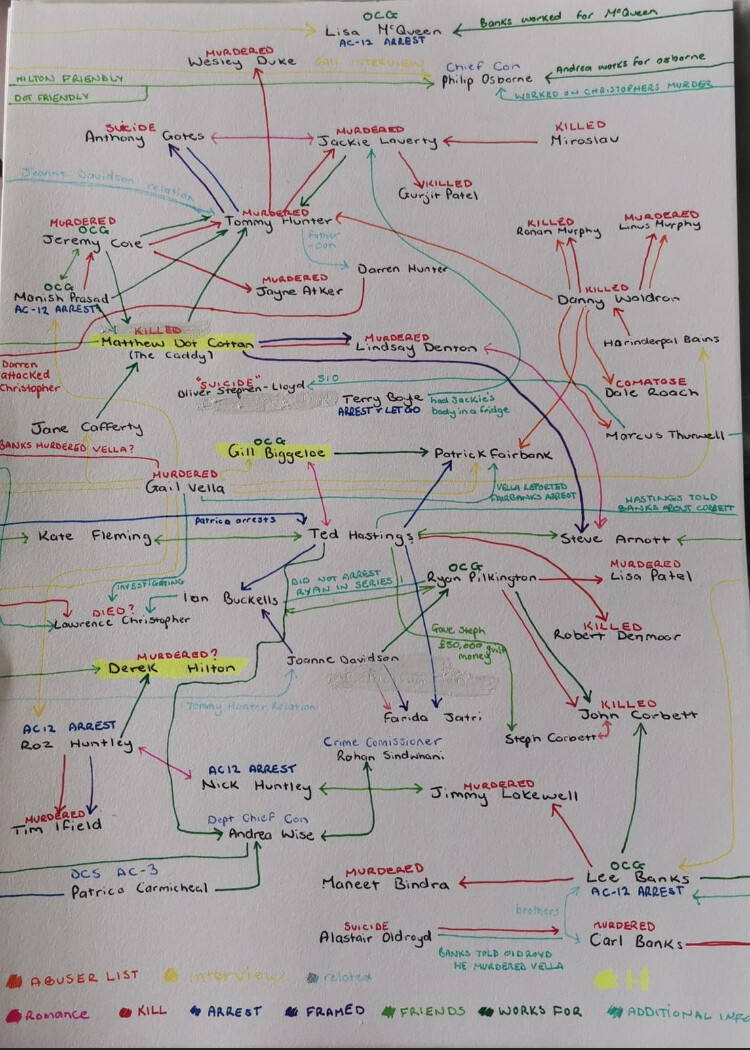 OCG
Lisa McQueen
AC-12 ARREST
Banks worked for McQueen
MURDERED
Wesley Duke
GAIL INTERVIEW
Chief Con
Philip Osborne
Andrea works for osborne
HILTON FRIENDLY
DOT FRIENDLY
WORKED ON CHRISTOPHERS MURDER
SUICIDE
Anthony Gates
MURDERED
Jackie Laverty
KILLED
Miroslav
Jeanne Davidson relation
KILLED
Gurjit Patel
MURDERED
OCG
Jeremy Cole
MURDERED
Tommy Hunter
KILLED
Ronan Murphy
MURDERED
Linus Murphy
Father
-son
Darren Hunter
OCG
Manish Prasad
AC-12 ARREST
MURDERED
Jayne Atker
KILLED
Danny Waldron
KILLED
Matthew Dot Cottan
(The Caddy)
MURDERED
Lindsay Denton
Harinderpal Bains
Darren
attacked
Christopher
"SUICIDE"
Oliver Stephen-Lloyd
SIO
Terry Boyle
ARREST & LET GO
had Jackie's
body in a fridge
COMATOSE
Dale Roach
Jane Cafferty
Marcus Thurwell
BANKS MURDERED VELLA?
OCG
Gill Biggeloe
Patrick Fairbank
MURDERED
Gail Vella
VELLA REPORTED
FAIRBANKS ARREST
HASTINGS TOLD
BANKS ABOUT CORBETT
Patrica arrests
Kate Fleming
Ted Hastings
Steve Arnott
INVESTIGATING
DID NOT ARREST
RYAN IN SERIES 1
OCG
Ryan Pilkington
MURDERED
Lisa Patel
DIED?
Lawrence Christopher
Ian Buckells
KILLED
Robert Denmoor
Gave Steph
£50,000 guilt
money
MURDERED?
Derek Hilton
Joanne Davidson
Tommy Hunter Relation
Farida Jatri
KILLED
John Corbett
Steph Corbett
AC12 ARREST
Roz Huntley
Crime Comissioner
Rohan Sindwhani
AC12 ARREST
Nick Huntley
MURDERED
Jimmy Lakewell
MURDERED
Tim Ifield
Dept Chief Con
Andrea Wise
DCS AC-3
Patrica Carmicheal
MURDERED
Maneet Bindra
OCG
Lee Banks
AC-12 ARREST
brothers
SUICIDE
Alastair Oldroyd
MURDERED
Carl Banks
BANKS TOLD OLDROYD
HE MURDERED VELLA
ABUSER LIST
interview
related
H
Romance
KILL
ARREST
FRAMED
FRIENDS
WORKS FOR
ADDITIONAL INFO